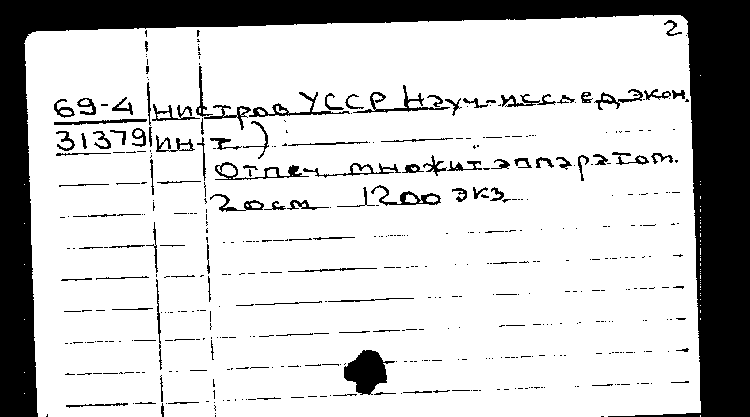 2
69-4 нистров УССР Науч-исслед. экон.
31379 ин-т)
Отпеч. множит. аппаратом.
20см 1200 экз